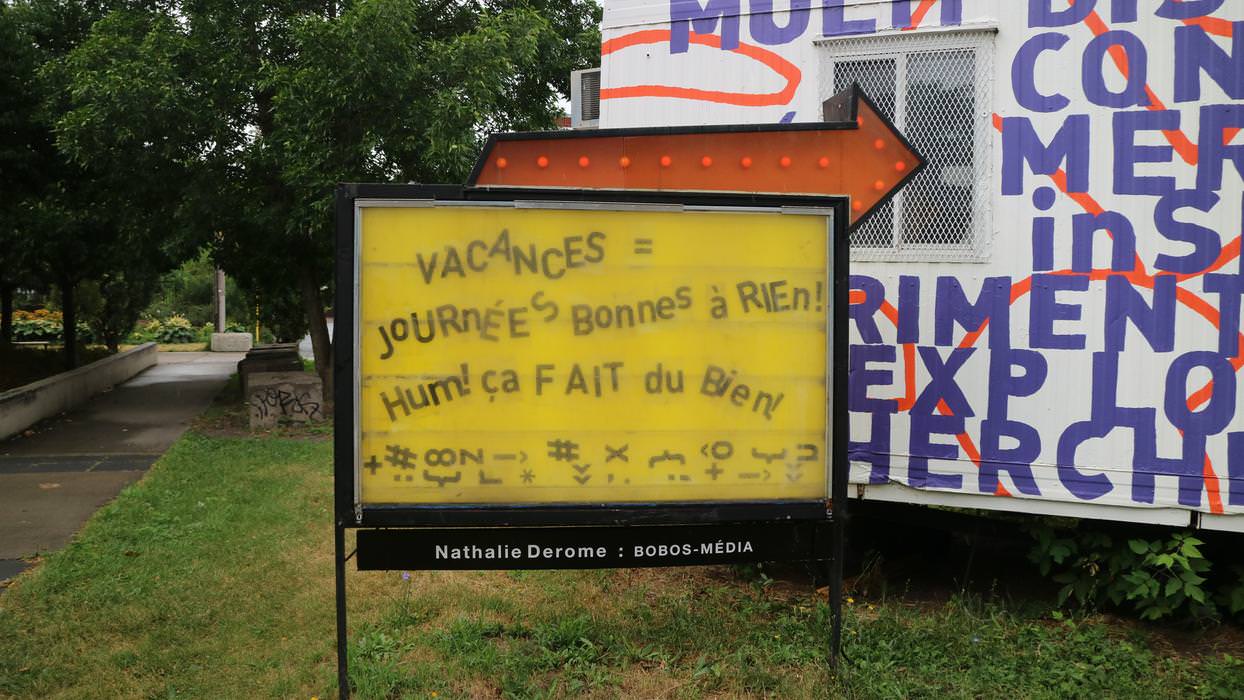 VACANCES =
JOURNÉES Bonnes à RIEn!
Hum! ça FAIT du Bien!
Nathalie Derome : BOBOS-MÉDIA
MULTI DIS
CON
MER
ins
RIMENT
EXPLO
HERCH